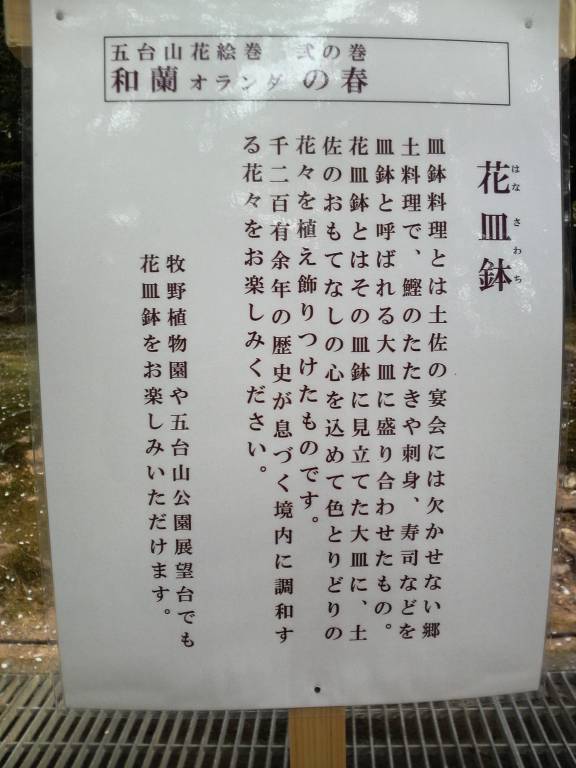 五台山花絵巻 弐の巻
和蘭オランダの春
花皿鉢
はな さわち
皿鉢料理とは土佐の宴会には欠かせない郷
土料理で、鰹のたたきや刺身、寿司などを
皿鉢と呼ばれる大皿に盛り合わせたもの。
花皿鉢とはその皿鉢に見立てた大皿に、土
佐のおもてなしの心を込めて色とりどりの
花々を植え飾りつけたものです。
千二百有余年の歴史が息づく境内に調和す
る花々をお楽しみください。
牧野植物園や五台山公園展望台でも
花皿鉢をお楽しみいただけます。